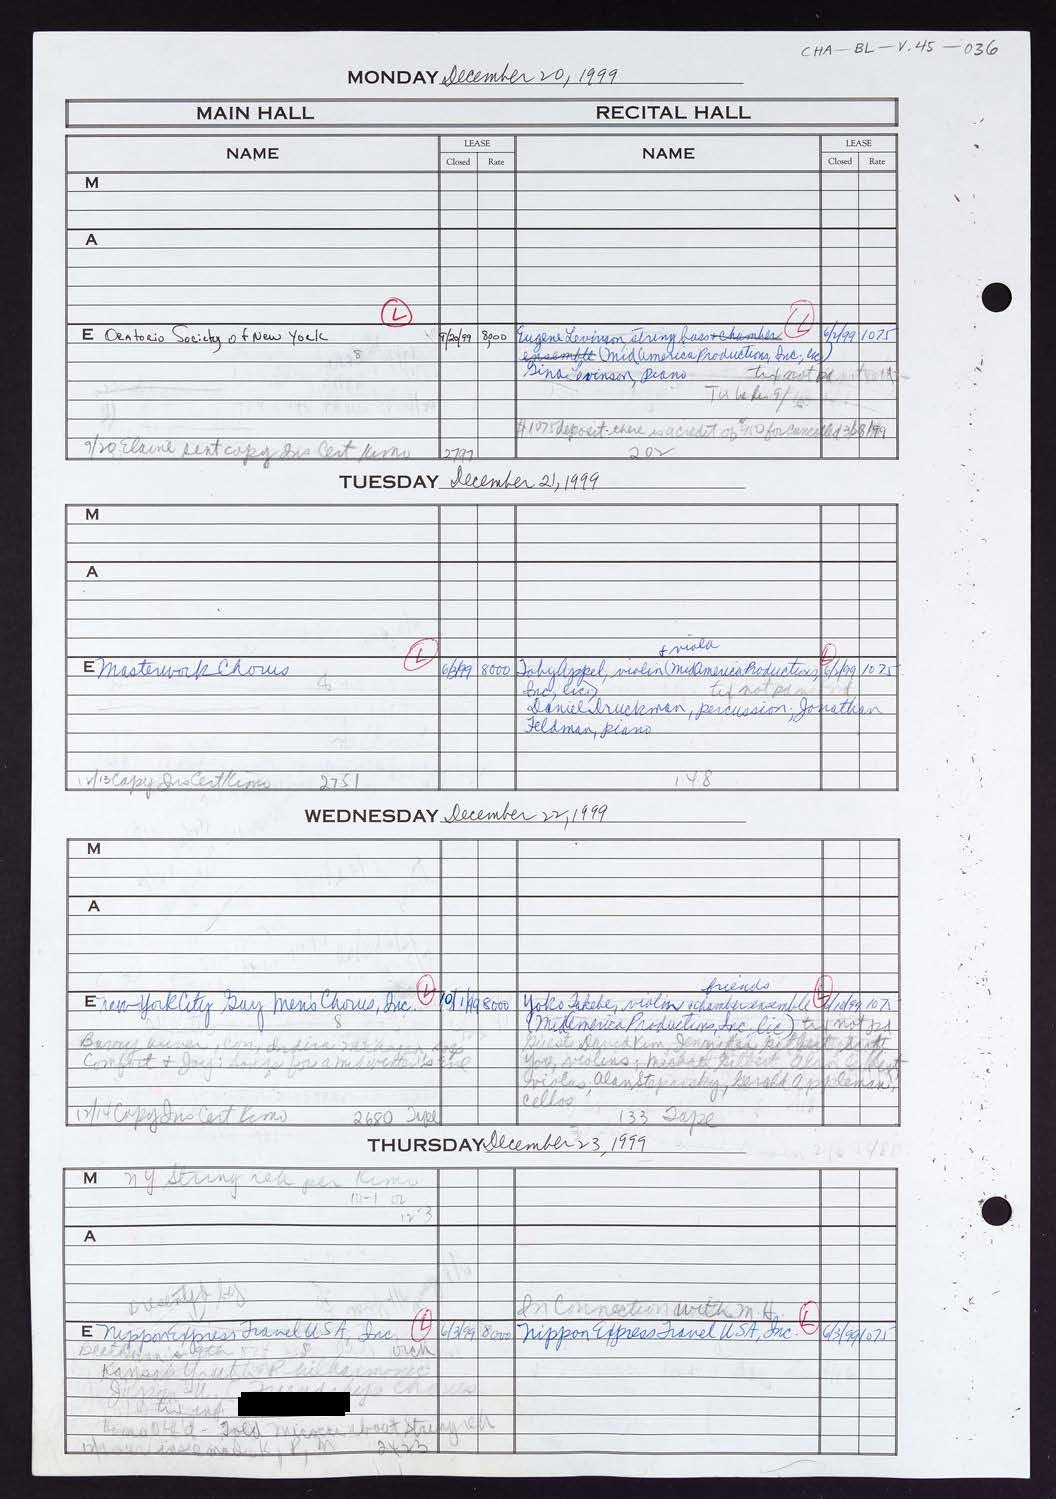 CHA-BL-V.45-036
MONDAY December 20, 1999
MAIN HALL RECITAL HALL
NAME LEASE Closed Rate NAME LEASE Closed Rate
M
A
L L
E Oratorio Society of New York 9/20/99 8000 Eugene Levinson, string bass + chamber 6/2/99 1075
8 ensemble (MidAmerica Productions, Inc, lic)
Gina Levinson, piano tix not pd
$1075 deposit - there is a credit of for cancelled
9/20 Elaine sent copy Ins Cert Kimo 2797 202
TUESDAY December 21, 1999
M
A
L + viola L
E Masterwork Chorus 6/3/99 8000 Toby Appel, violin (MidAmerica Productions, 6/2/99 1075
8 Inc, lic) tix not pd
Daniel Druckman, percussion; Jonathan
Feldman, piano
12/13 Copy Ins Cert Kimo 2751 148
WEDNESDAY December 22, 1999
M
A
L friends L
E New York City Gay Men's Chorus, Inc. 10/1/99 8000 Yoko Takebe, violin + chamber ensemble 1075
8 (MidAmerica Productions, Inc, lic) tix not pd
Guests David Kim
Comfort + Joy: Songs for a midwinter's eve violins;
violas; Alan Stepansky, Gerald Appleman,
cellos
12/14 Copy Ins Cert Kimo 2680 Tape 133 Tape
THURSDAY December 23, 1999
M NY String reh per Kimo
10-1 or
12-3
A
presented by In Connection with M.H.
L L
E Nippon Express Travel USA, Inc. 6/3/99 8000 Nippon Express Travel USA, Inc. 6/3/99 1075
Beethoven's 9th orch
Philharmonic
Chorus
Told about String reh
2423